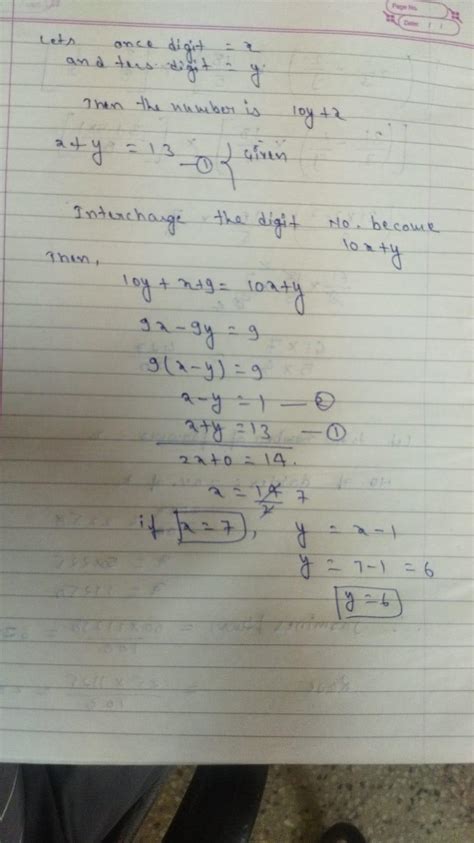 Page No.
Date: / /
Lets once digit = x
and tens digit = y.
Then the number is 10y+x
x+y = 13 — ① } Given
Interchange the digit No. become
10x+y
Then,
10y + x+9 = 10x+y
9x-9y = 9
9(x-y) = 9
x-y = 1 — ②
x+y = 13 — ①
2x+0 = 14.
x = 14/2 7
if x=7, y = x-1
y = 7-1 = 6
y=6